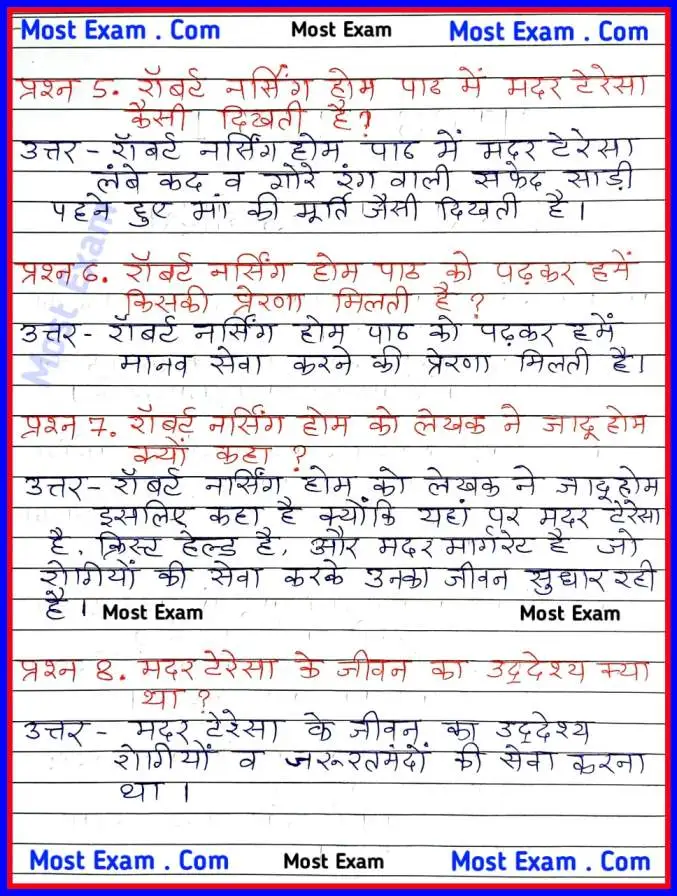 Most Exam . Com Most Exam Most Exam . Com
प्रश्न 5. रॉबर्ट नर्सिंग होम पाठ में मदर टेरेसा
कैसी दिखती है?
उत्तर - रॉबर्ट नर्सिंग होम पाठ में मदर टेरेसा
लंबे कद व गोरे रंग वाली सफेद साड़ी
पहने हुए मां की मूर्ति जैसी दिखती है।
प्रश्न 6. रॉबर्ट नर्सिंग होम पाठ को पढ़कर हमें
किसकी प्रेरणा मिलती है ?
उत्तर - रॉबर्ट नर्सिंग होम पाठ को पढ़कर हमें
मानव सेवा करने की प्रेरणा मिलती है।
Most Exam
प्रश्न 7. रॉबर्ट नर्सिंग होम को लेखक ने जादू होम
क्यों कहा ?
उत्तर - रॉबर्ट नर्सिंग होम को लेखक ने जादू होम
इसलिए कहा है क्योंकि यहां पर मदर टेरेसा
है, क्रिस्ट हेल्ड है, और मदर मार्गरेट है जो
रोगियों की सेवा करके उनका जीवन सुधार रही
है। Most Exam Most Exam
प्रश्न 8. मदर टेरेसा के जीवन का उद्देश्य क्या
था ?
उत्तर - मदर टेरेसा के जीवन का उद्देश्य
रोगियों व जरूरतमंदों की सेवा करना
था ।
Most Exam . Com Most Exam Most Exam . Com